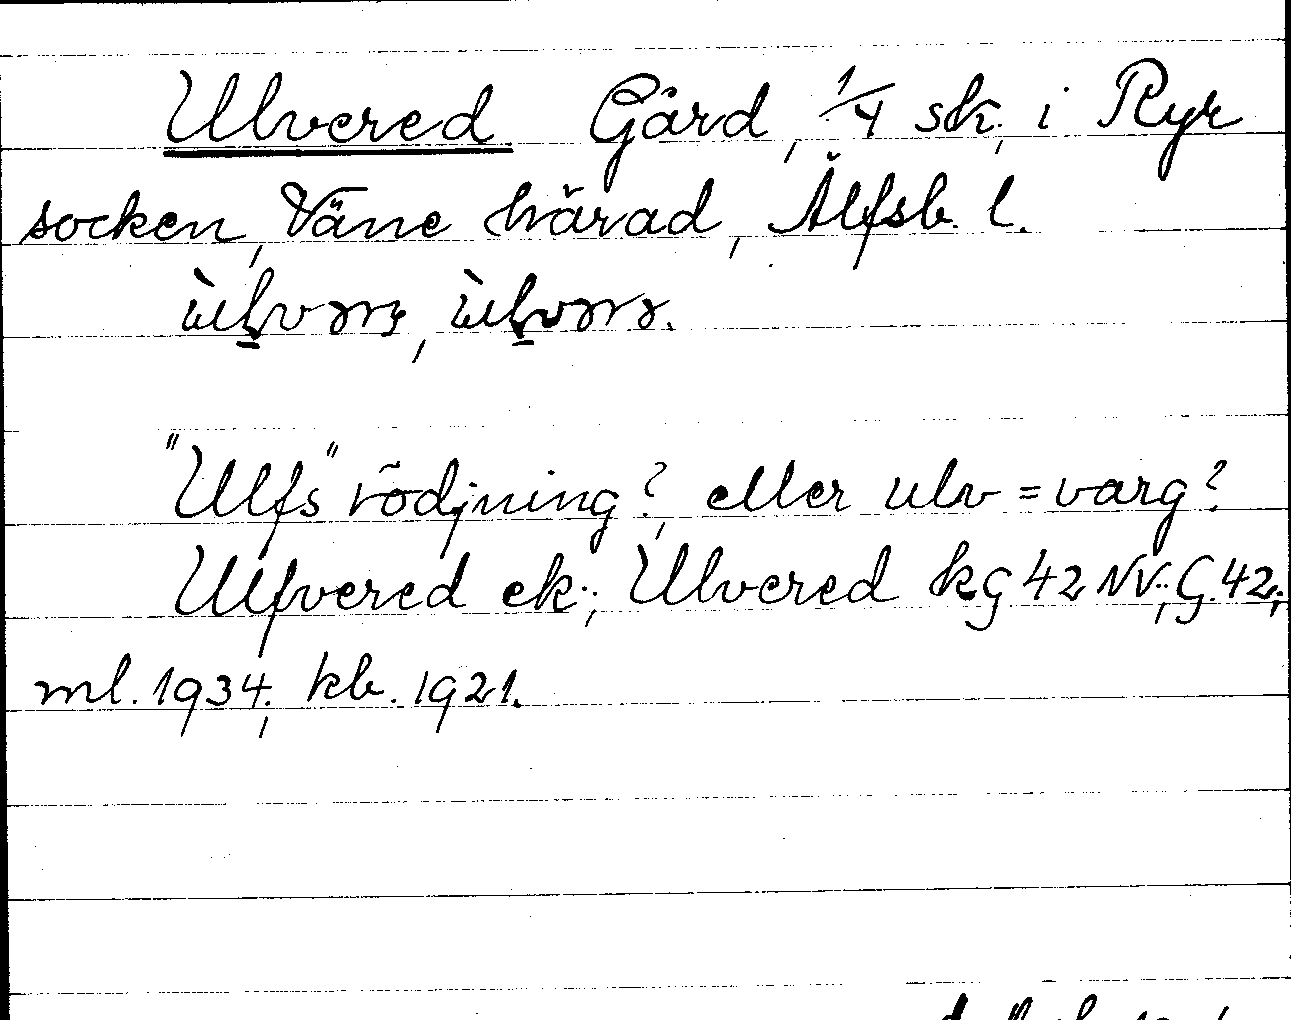 Ulvered Gård, 1/4 sk. i Ryr
socken, Väne härad, Älfsb. l.
"Ulfs" rödjning?, eller ulv = varg?
Ulfvered ek.; Ulvered kg 42 NV.; G. 42.;
ml. 1934.; kb. 1921.